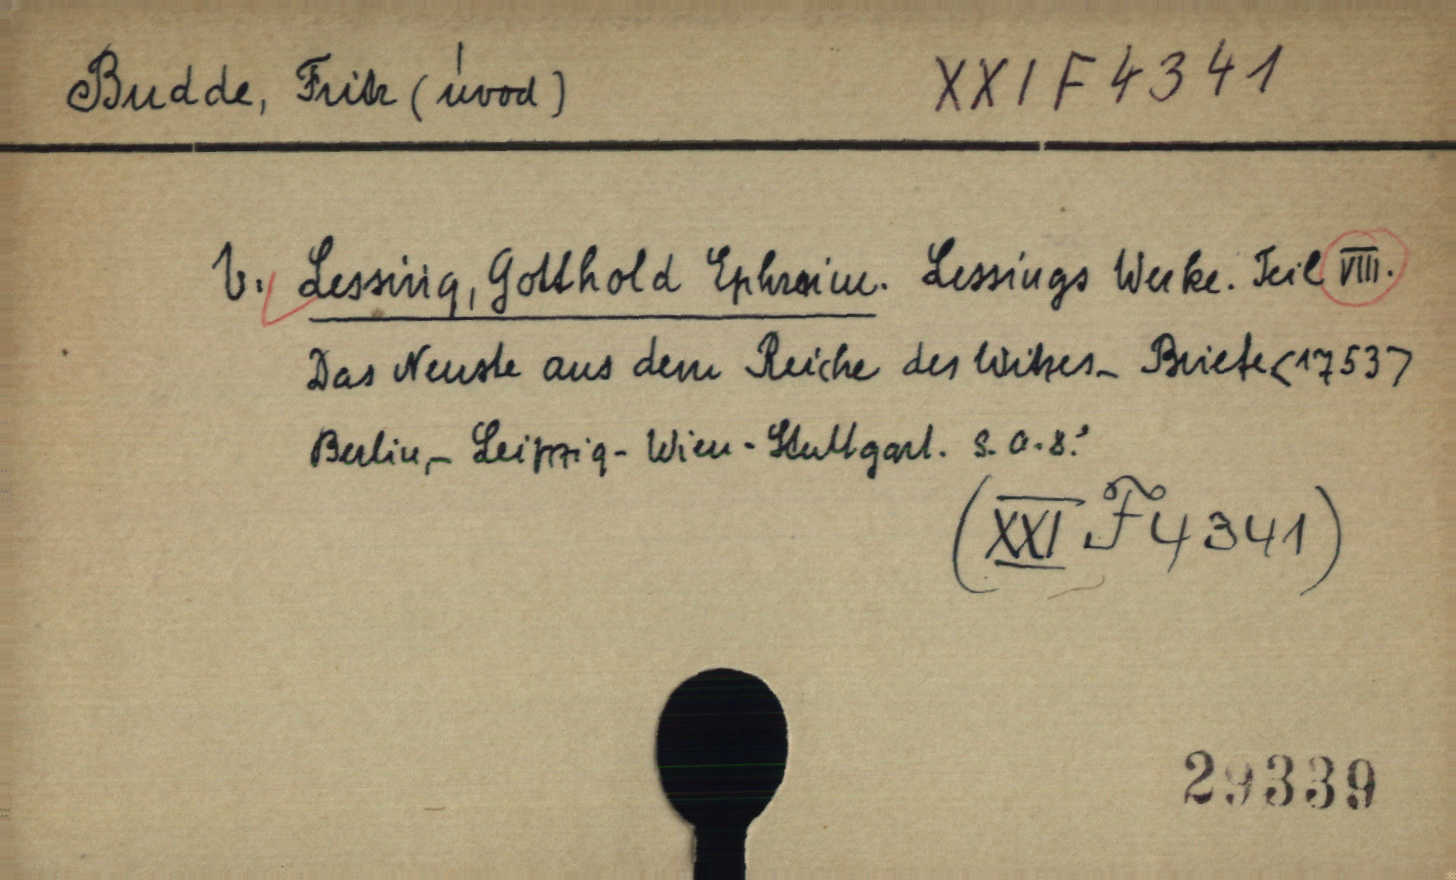 Budde, Fritz (úvod) XXI F 4341
V. Lessing, Gotthold Ephraim. Lessings Werke. Teil VIII.
Das Neuste aus dem Reiche des Witzes - Briefe <1753>
Berlin, - Leipzig - Wien - Stuttgart. s. a. 8.°
(XXI F 4341)
29339